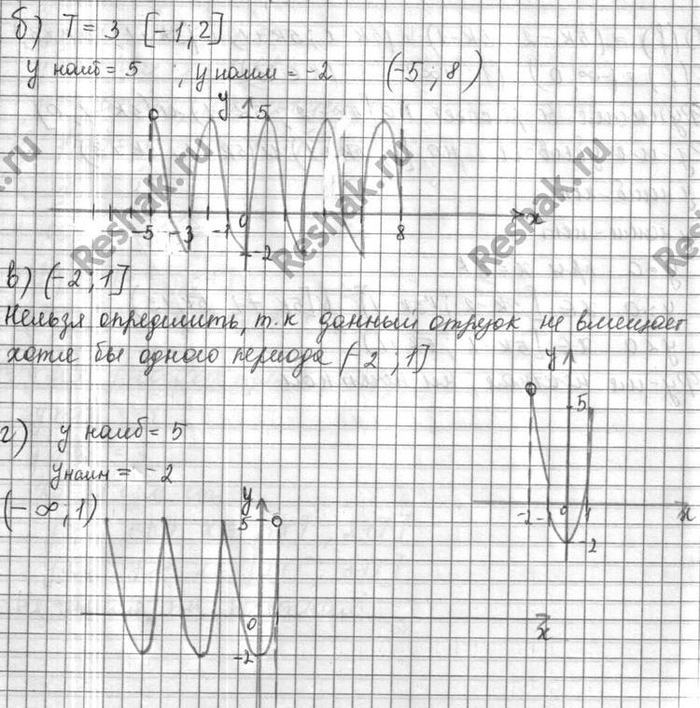 б) T = 3 [-1; 2]
y наиб = 5 ; y наим = -2 (-5; 8)
y 5
-5 -3 -1 0 8 x
-2
в) (-2; 1]
Нельзя определить, т.к данный отрезок не вмещает
хотя бы одного периода (-2; 1]
y
5
-2 -1 0 1 x
-2
г) y наиб = 5
y наим = -2
(-∞; 1)
y
5
0
x
-2
Reshak.ru
Reshak.ru
Reshak.ru
Reshak.ru